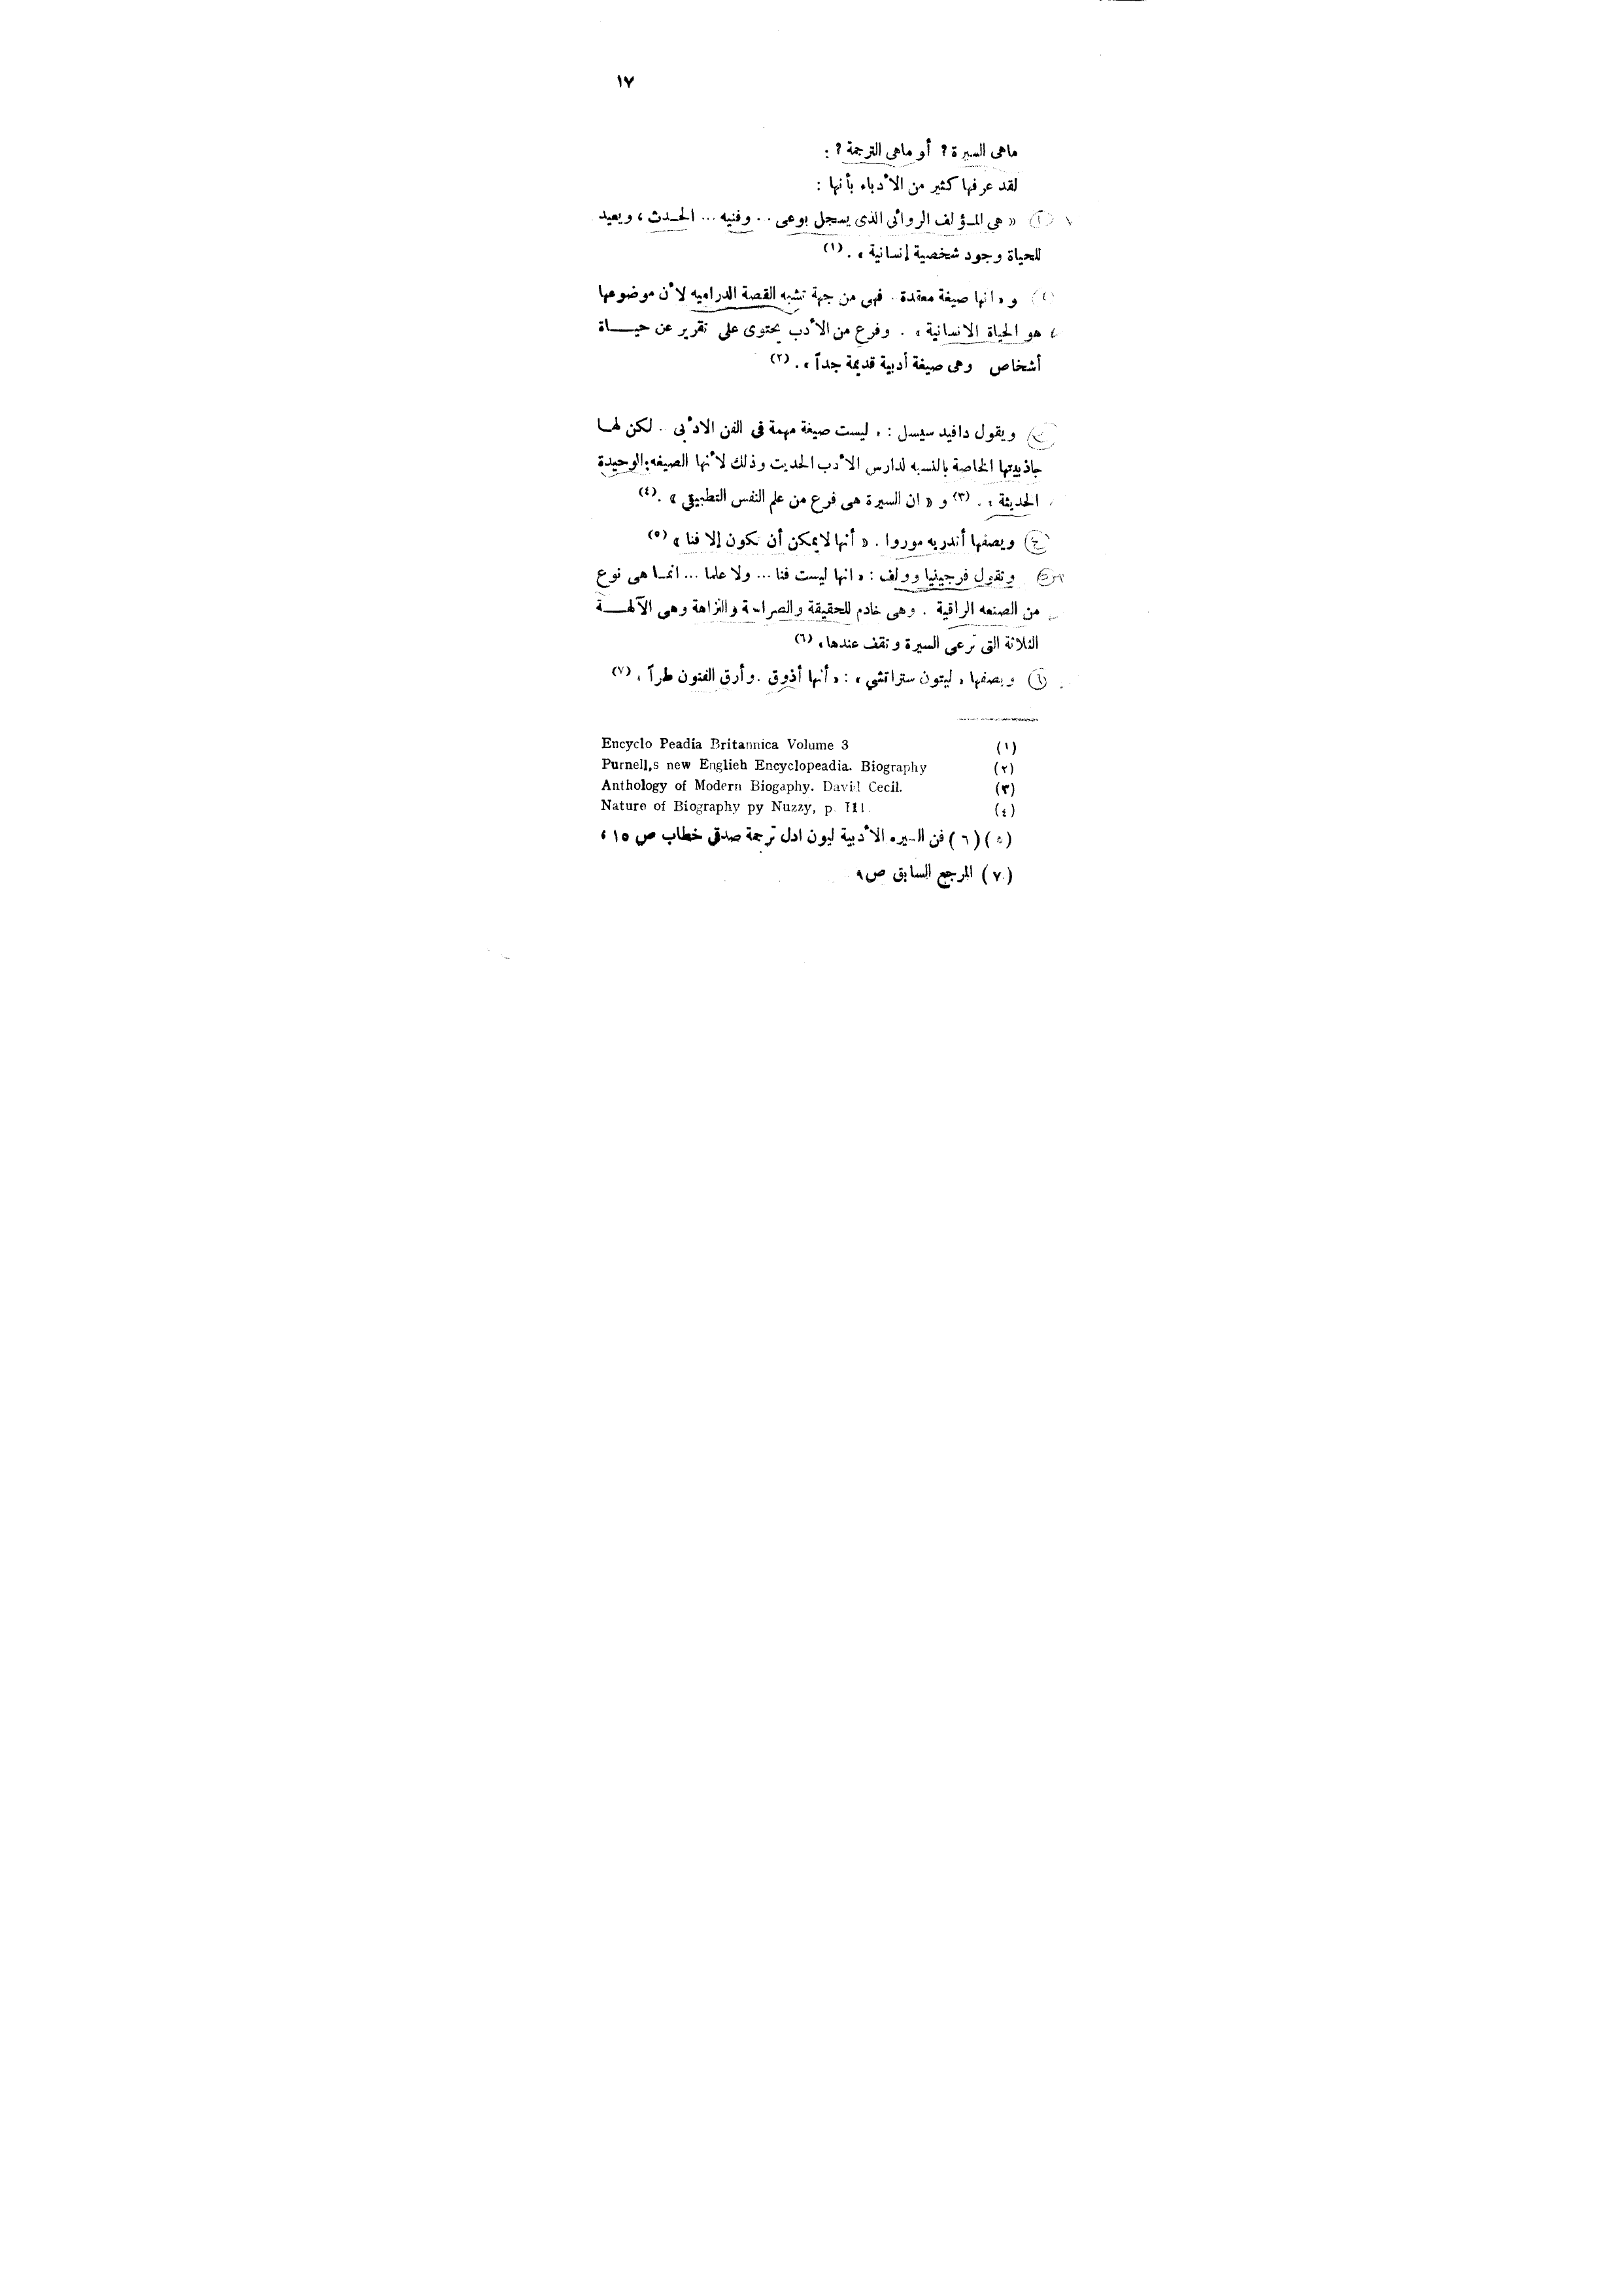 ١٧
ماهى السيرة ؟ أو ماهى الترجمة ؟ :
لقد عرفها كثير من الأدباء بأنها :
« هى المـؤلف الروائى الذى يسجل بوعى . . وفنيه ... الحـدث ، ويعيد
للحياة وجود شخصية إنسانية » . (١)
و « انها صيغة معقدة . فهى من جهة تشبه القصة الدراميه لأن موضوعها
هو الحياة الانسانية » . وفرع من الأدب يحتوى على تقرير عن حيـــاة
أشخاص وهى صيغة أدبية قديمة جداً » . (٢)
ويقول دافيد سيسل : « ليست صيغة مهمة فى الفن الادبى . لكن لهـا
جاذبيتها الخاصة بالنسبه لدارس الأدب الحديث وذلك لأنها الصيغه الوحيدة
الحديثة » . (٣) و « ان السيرة هى فرع من علم النفس التطبيقي » . (٤)
(ج) ويصفها أندريه موروا . « أنها لايمكن أن تكون إلا فنا » (٥)
وتقول فرجينيا وولف : « انها ليست فنا ... ولا علما ... انمـا هى نوع
من الصنعه الراقية . وهى خادم للحقيقة والصراحة والنزاهة وهى الآلهـــة
الثلاثة التى ترعى السيرة وتقف عندها » (٦)
ويصفها « ليتون ستراتشي » : « أنها أذوق . وأرق الفنون طراً » (٧)
Encyclo Peadia Britannica Volume 3 (١)
Purnell,s new Englieh Encyclopeadia. Biography (٢)
Anthology of Modern Biogaphy. David Cecil. (٣)
Nature of Biography py Nuzzy, p. 111. (٤)
(٥) (٦) فن السيره الأدبية ليون ادل ترجمة صدقى خطاب ص ١٥ ،
(٧) المرجع السابق ص٩